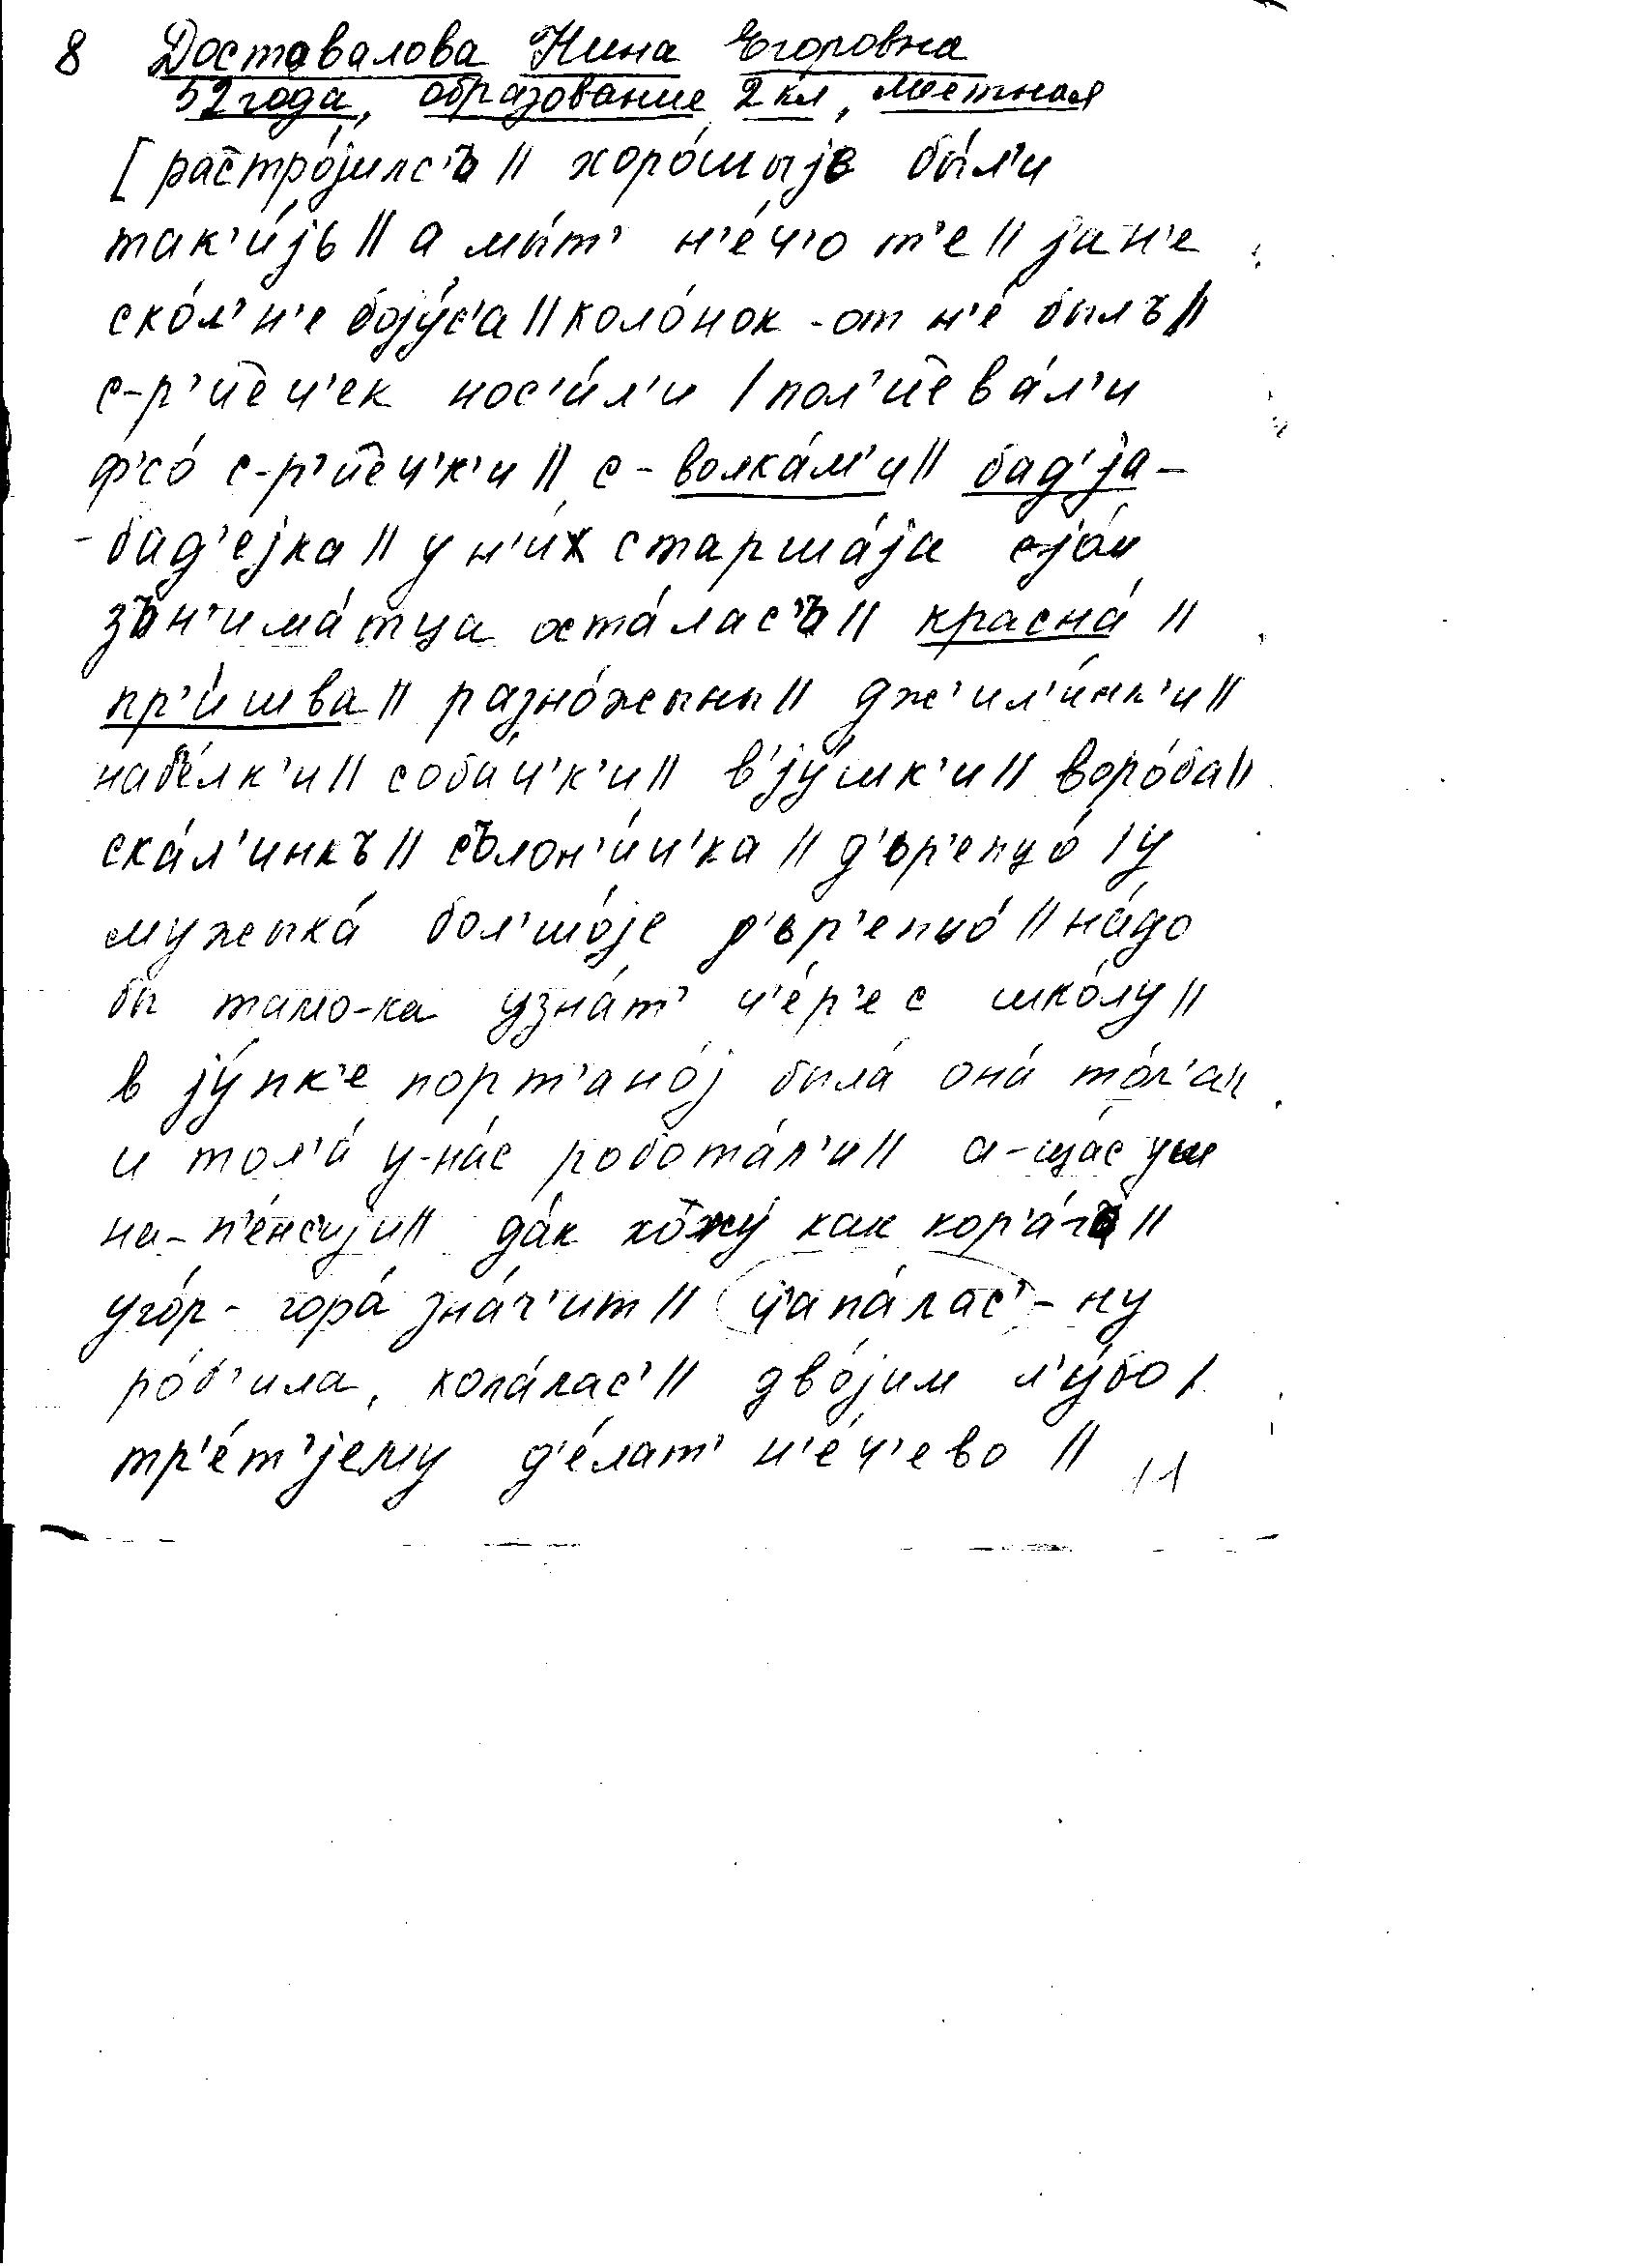 8 Доставалова Нина Егоровна
52 года, образование 2 кл, местная
[растро́јилс'ъ || хоро́шыјь бы́л'и
так'и́јь || а мы́т' н'е́ч'о т'е || ја н'е
ско́л'н'е боју́с'а || коло́нок -от н'е́ былъ ||
с-р'и͡еч'ек нос'и́л'и / пол'и͡ева́л'и
ф'со́ с-р'и͡еч'к'и || с - волка́м'и || бад'ја -
- бад'ејка || у н'и́х старша́ја
зън'има́тца оста́лас'ъ || красна́ ||
пр'и́шва || разно́жыны || дж'ил'и́нк'и ||
набе́лк'и || соба́ч'к'и || в'ју́шк'и || воро́ба ||
ска́л'инкъ || сълон'и́ч'ка || д'ър'епцо́ / у
мужыка́ бол'шо́је д'ър'епцо́ || на́до
бы тамо-ка узна́т' ч'е́р'е с шко́лу ||
в ју́пк'е порт'ано́ј была́ она́
и тол'а́ у-на́с робота́л'и || а-ща́с уш
на-п'е́нс'ији || да́к хожу́ как кор'а́гъ ||
уго́р - гора́ зна́ч'ит || ц'апа́лас' - ну
ро́б'ила, копа́лас' || дво́јим л'у́бо /
тр'е́т'јему д'е́лат' н'е́ч'ево || 11